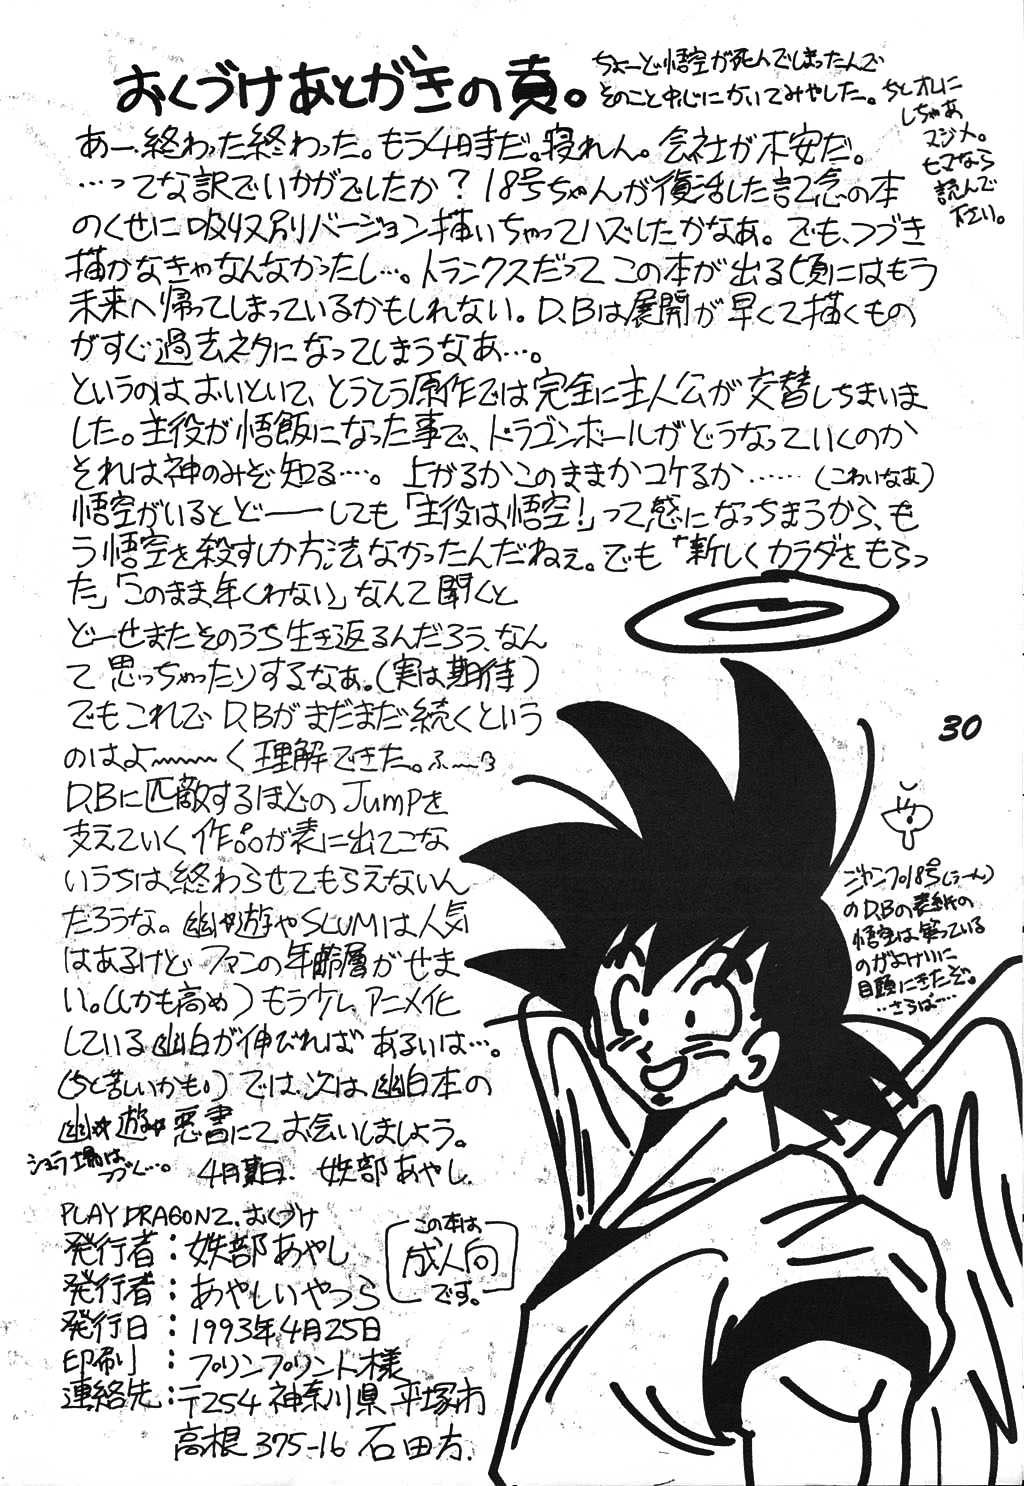 おくづけあとがきの頁。
ちょーど悟空が死んでしまったんで
そのこと中心にかいてみやした。ちとオレに
しちゃあ
マジメ。
ヒマなら
読んで
下さい。
あー、終わった終わった。もう4時だ。寝れん。会社が不安だ。
…ってな訳でいかがでしたか？18号ちゃんが復活した記念の本
のくせに吸収別バージョン描いちゃってハズしたかなぁ。でも、つづき
描かなきゃなんなかったし…。トランクスだってこの本が出る頃にはもう
未来へ帰ってしまっているかもしれない。D.Bは展開が早くて描くもの
がすぐ過去ネタになってしまうなあ…。
というのはおいといて、とうとう原作では完全に主人公が交替しちまいま
した。主役が悟飯になった事で、ドラゴンボールがどうなっていくのか
それは神のみぞ知る…。上がるかこのままかコケるか……（こわいなあ）
悟空がいるとど――しても「主役は悟空！」って感になっちまうから、も
う悟空を殺すしか方法なかったんだねぇ。でも「新しくカラダをもらっ
た」「このまま年くわない」なんて聞くと
どーせまたそのうち生き返るんだろう、なん
て思っちゃったりするなぁ。（実は期待）
でもこれでD.Bがまだまだ続くという
のはよ〜〜〜く理解できた。ふーっ
D.Bに匹敵するほどのJUMPを
支えていく作品が表に出てこな
いうちは終わらせてもらえないん
だろうな。幽☆遊やSLUMは人気
はあるけどファンの年齢層がせま
い。（しかも高め）もうTVアニメ化
している幽白が伸びればあるいは…。
（ちと苦しいかも。）では、次は幽白本の
幽☆遊☆悪書にてお会いしましょう。
シュラ場は
つづく…。
4月夏日、妖部あやし
PLAY DRAGON2.おくづけ
発行者：妖部あやし
発行者：あやしいやつら
発行日：1993年4月25日
印刷：プリンプリント様
連絡先：〒254 神奈川県平塚市
高根375-16 石田方.
この本は
成人向
です。
30
ジャンプ18号（うーん）
のD.Bの表紙の
悟空は笑っている
のがよけいに
目頭にきたぞ。
…さらば…